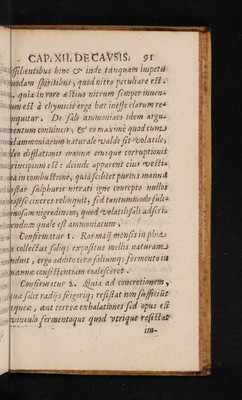 CAP. XII. DE CAVSIS. 91
dissilientibus hinc & inde tanquam impetu
quodam spiritibus, quod nitro peculiare est.
quia in roro æstiuo nitrum semper inuen-
tum est à chymicis ergo hæc inesse clarum re-
linquitur. De sale ammoniaco idem argu-
mentum conuincit, & eo maximè quod cum
sal ammoniacum naturale valde sit volatile,
ideo difflationis mannæ eiusque corruptionis
principium est: deinde apparent eius vesti-
gia in combustione, quia scilicet purius manna
instar sulphuris nitrati igne concepto nullos
post se cineres relinquit, sed tantummodo fuli-
ginosam nigredinem, quod volatili sali adscri-
bendum quale est ammoniacum.
Confirmatur 1. Roi maij mensis in phia-
la collectus saliq; expositus mellis naturam
induit, ergo addito terræ salium; fermento in
mannæ consistentiam coalesceret.
Confirmatur 2. Quia ad concretionem,
quæ solis radijs frigoriq; resistat non sufficiũt
aqueæ, aut terreæ exhalationes sed opus est
vinculo fermentoque quod vtrique resistat
im-